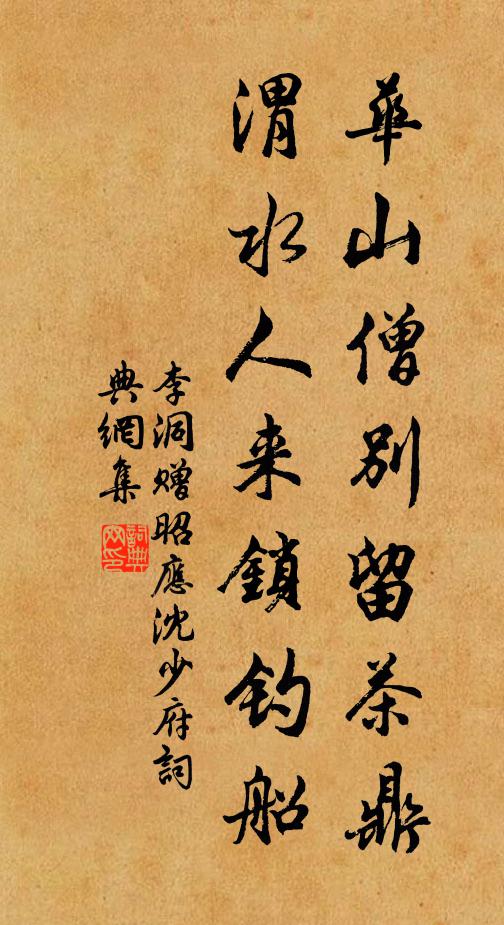 華山僧別留茶鼎
渭水人来鎖钓船
李洞赠昭應沈少府詞
典網集
詞典网印